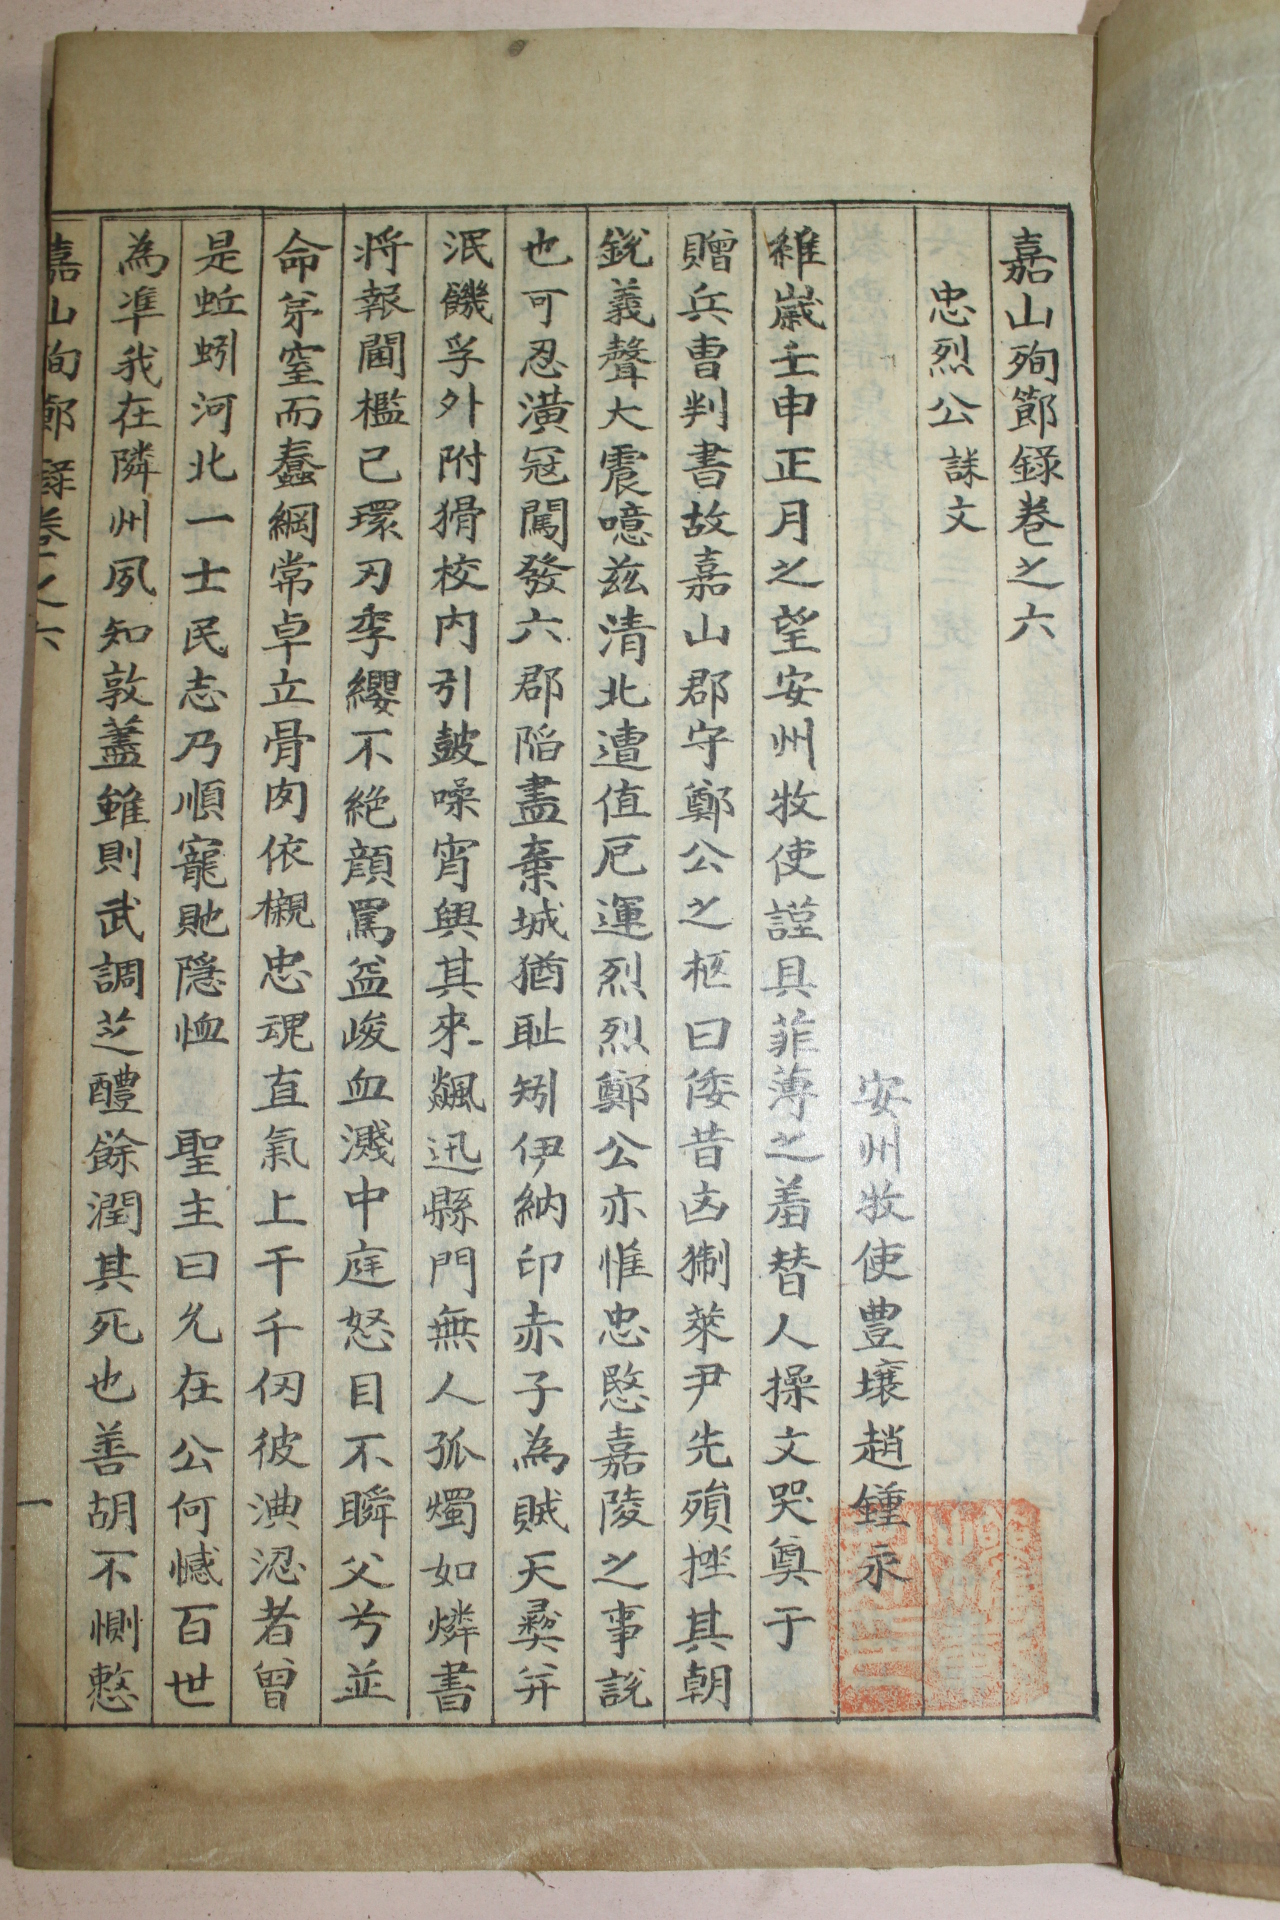 嘉山殉節錄卷之六
忠烈公誄文
安州牧使豊壤趙鍾永
維歲壬申正月之望安州牧使謹具菲薄之羞替人操文哭奠于
贈兵曹判書故嘉山郡守鄭公之柩曰倭昔凶猘萊尹先殞挫其朝
銳義聲大震噫玆清北遭值厄運烈烈鄭公亦惟忠愍嘉陵之事說
也可忍潢冦闖發六郡陷盡棄城猶耻矧伊納印赤子為賊天彛幷
泯饑孚外附猾校內引鼓噪宵興其來飆迅縣門無人孤燭如燐書
将報閫檻已環刃季纓不絶顔罵益峻血濺中庭怒目不瞬父兮並
命弟窒而蠢綱常卓立骨肉依櫬忠魂直氣上干千仞彼淟涊者曾
是蚯蚓河北一士民志乃順寵貤隱恤 聖主曰允在公何憾百世
為準我在隣州夙知敦蓋雖則武調芝醴餘潤其死也善胡不惻慗
嘉山殉節錄卷之六
一